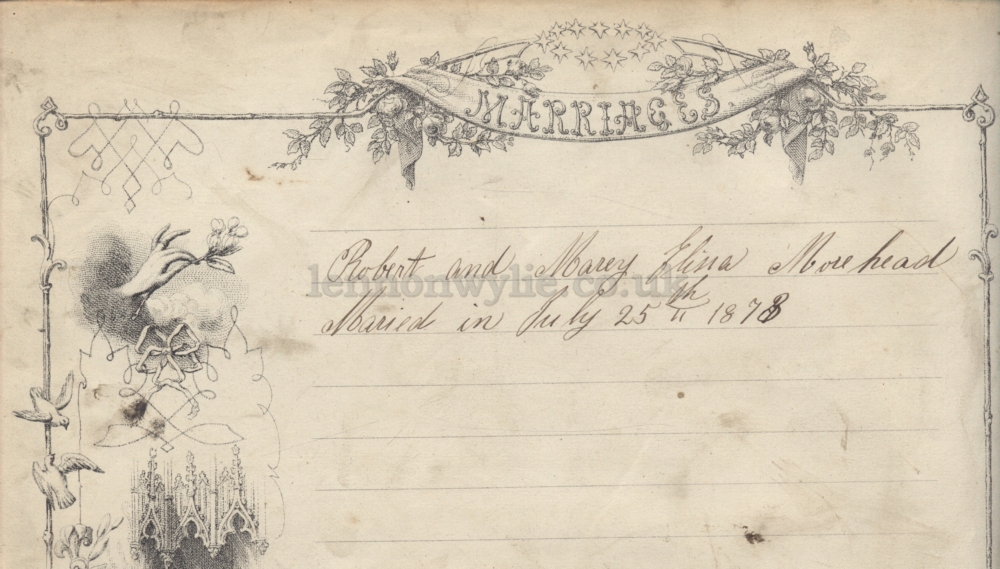 MARRIAGES.
Robert and Marey Elisa Morehead
lennonwylie.co.uk
Maried in July 25th 1878